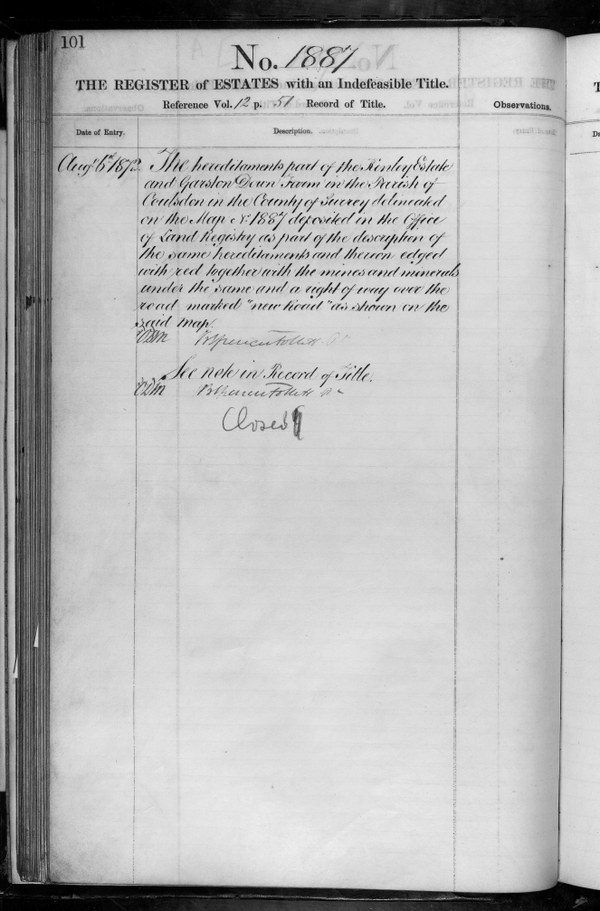 101
No. 1887
THE REGISTER of ESTATES with an Indefeasible Title.
Reference Vol. 12 p. 51 Record of Title.
Observations.
Date of Entry.
Description.
Augt 15th 1872 The hereditaments part of the Kenley Estate
and Garston Down Farm in the Parish of
Coulsdon in the County of Surrey delineated
on the Map No 1887 deposited in the Office
of Land Registry as part of the description of
the same hereditaments and thereon edged
with red together with the mines and minerals
under the same and a right of way over the
road marked "new Road" as shown on the
said map.
Brent Spencer Follett
See note in Record of Title.
Brent Spencer Follett
Closed